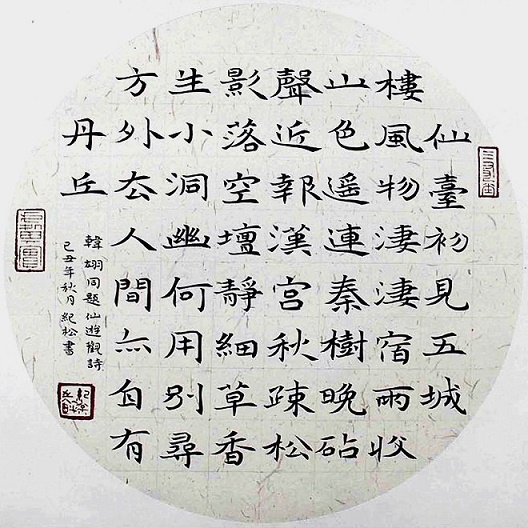 仙臺初見五城
樓風物淒淒宿雨收
山色遥連秦樹晚砧
聲近報漢宮秋疎松
影落空壇靜細草香
生小洞幽何用別尋
方外厺人間亦自有
丹丘
韓翃同題仙遊觀詩
己丑年秋月紀松書